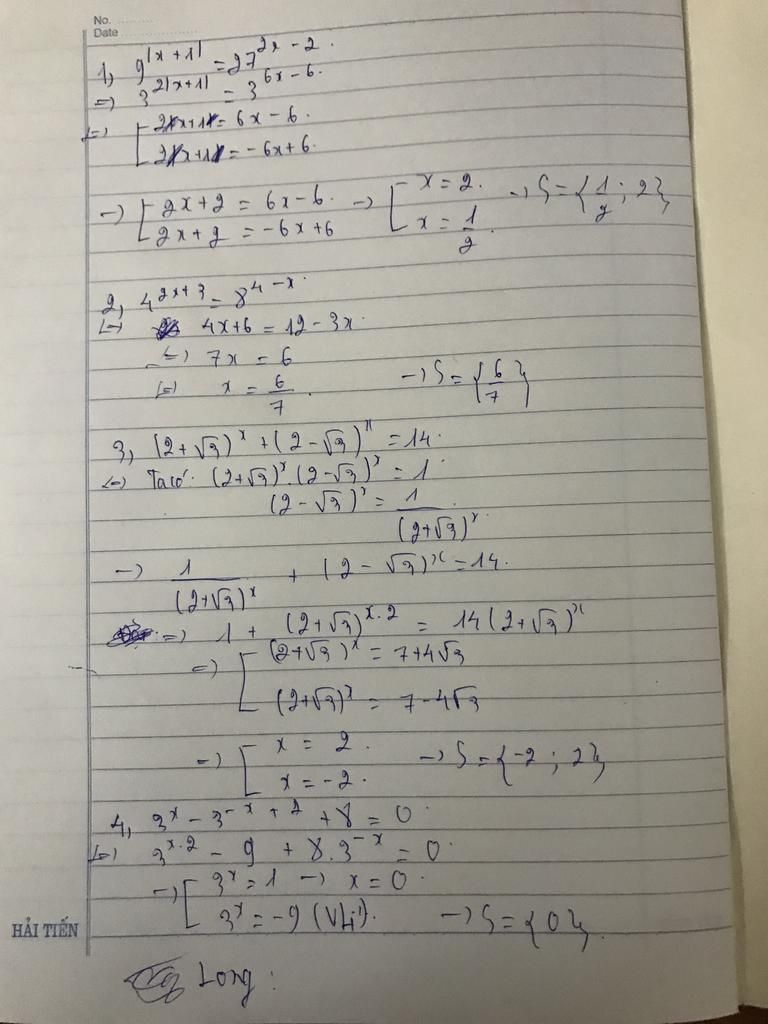 No.
Date
1, 9^|x+1| = 27^(2x-2).
=> 3^(2|x+1|) = 3^(6x-6).
<=> [ 2x+1 = 6x-6.
2x+1 = -6x+6.
-> [ 2x+2 = 6x-6. -> [ x = 2. -> S = {1/2 ; 2}
2x+2 = -6x+6 x = 1/2.
2, 4^(2x+3) = 8^(4-x).
<=> 4x+6 = 12-3x.
<=> 7x = 6
<=> x = 6/7. -> S = {6/7}
3, (2+√3)^x + (2-√3)^x = 14.
<=> Ta có: (2+√3)^x.(2-√3)^x = 1
(2-√3)^x = 1/(2+√3)^x.
-> 1/(2+√3)^x + (2-√3)^x = 14.
=> 1 + (2+√3)^(x.2) = 14(2+√3)^x
=> [ (2+√3)^x = 7+4√3
(2+√3)^x = 7-4√3
-> [ x = 2. -> S = {-2 ; 2}
x = -2.
4, 3^x - 3^(-x+2) + 8 = 0.
<=> 3^(x.2) - 9 + 8.3^(-x) = 0.
-> [ 3^x = 1 -> x = 0.
3^x = -9 (VLí). -> S = {0}.
HẢI TIẾN
Long: